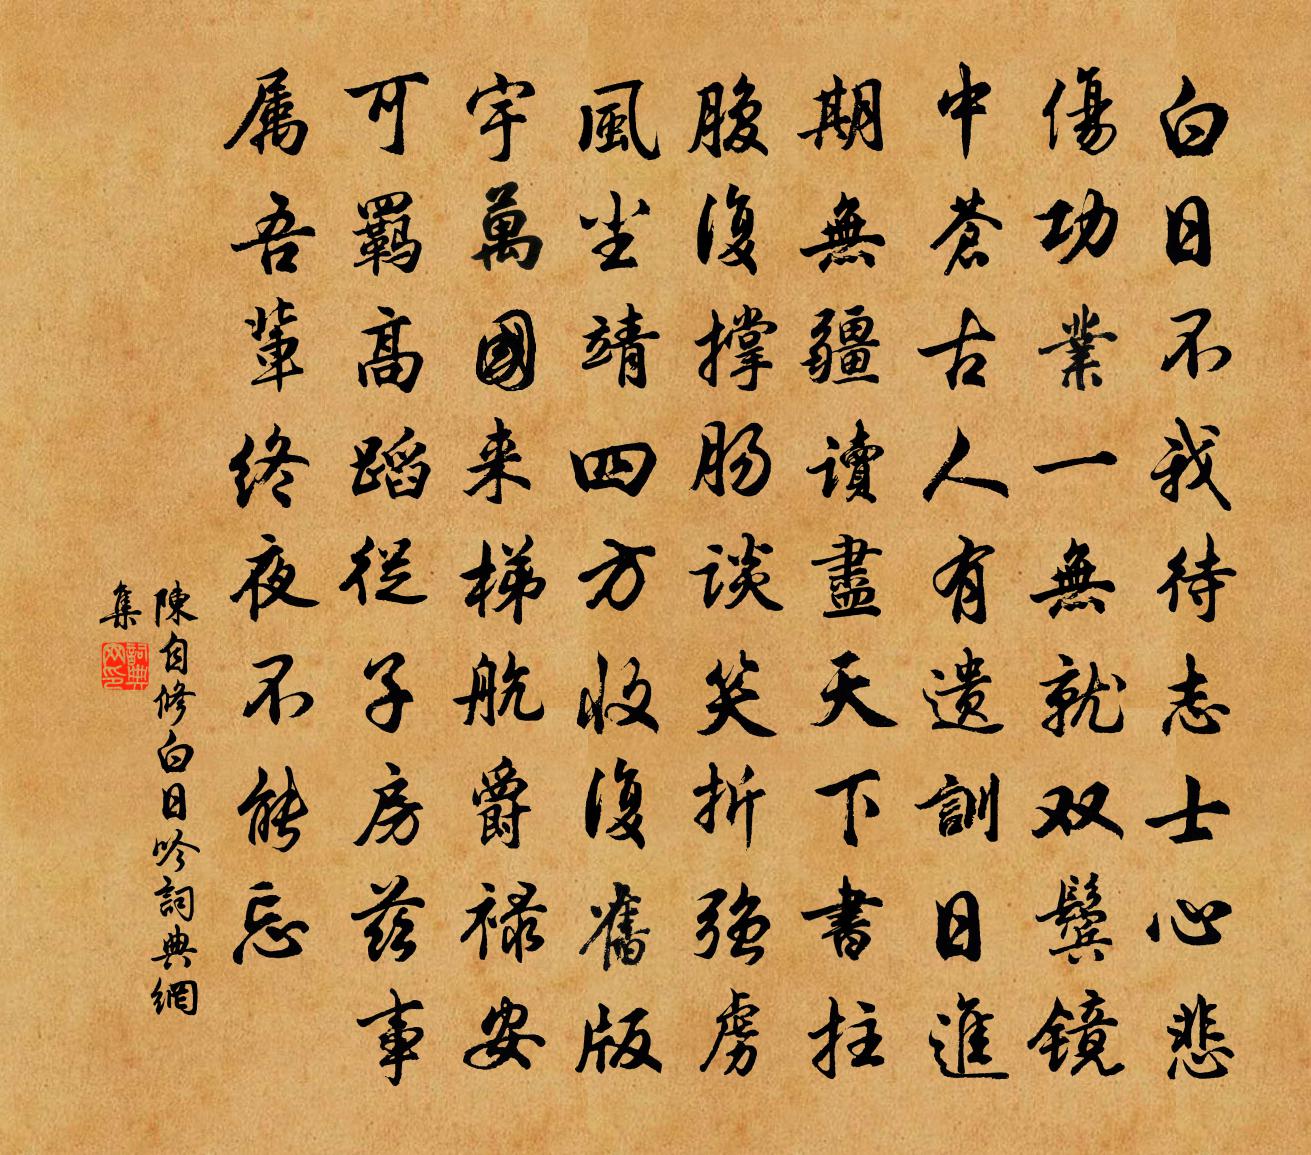 白日不我待志士心悲
傷功業一無就双鬓镜
中蒼古人有遗訓日進
期無疆讀盡天下書拄
腹復撑肠談笑折强虏
風尘靖四方收復舊版
宇萬國来梯航爵禄安
可羁高蹈從子房兹事
属吾輩终夜不能忘
陳自修白日吟詞典網
集
詞典
网印